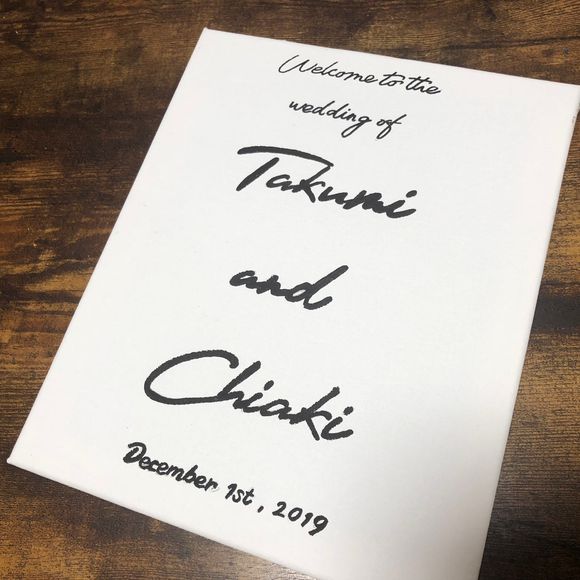 Welcome to the
wedding of
Takumi
and
Chiaki
December 1st, 2019